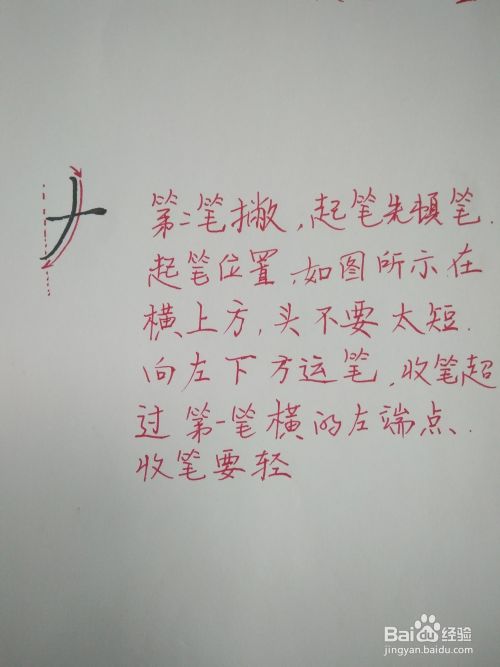 第二笔撇，起笔先顿笔．
起笔位置，如图所示在
横上方，头不要太短．
向左下方运笔，收笔超
过第一笔横的左端点、
收笔要轻
Bai du 经验
jingyan.baidu.com